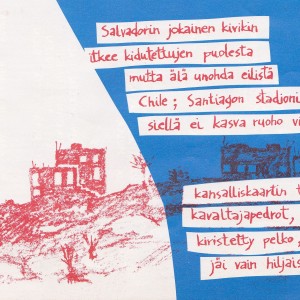 Salvadorin jokainen kivikin
itkee kidutettujen puolesta
mutta älä unohda eilistä
Chile; Santiagon stadioni
siellä ei kasva ruoho
kansalliskaartin
kavaltajapedrot,
kiristetty pelko,
jäi vain hiljais